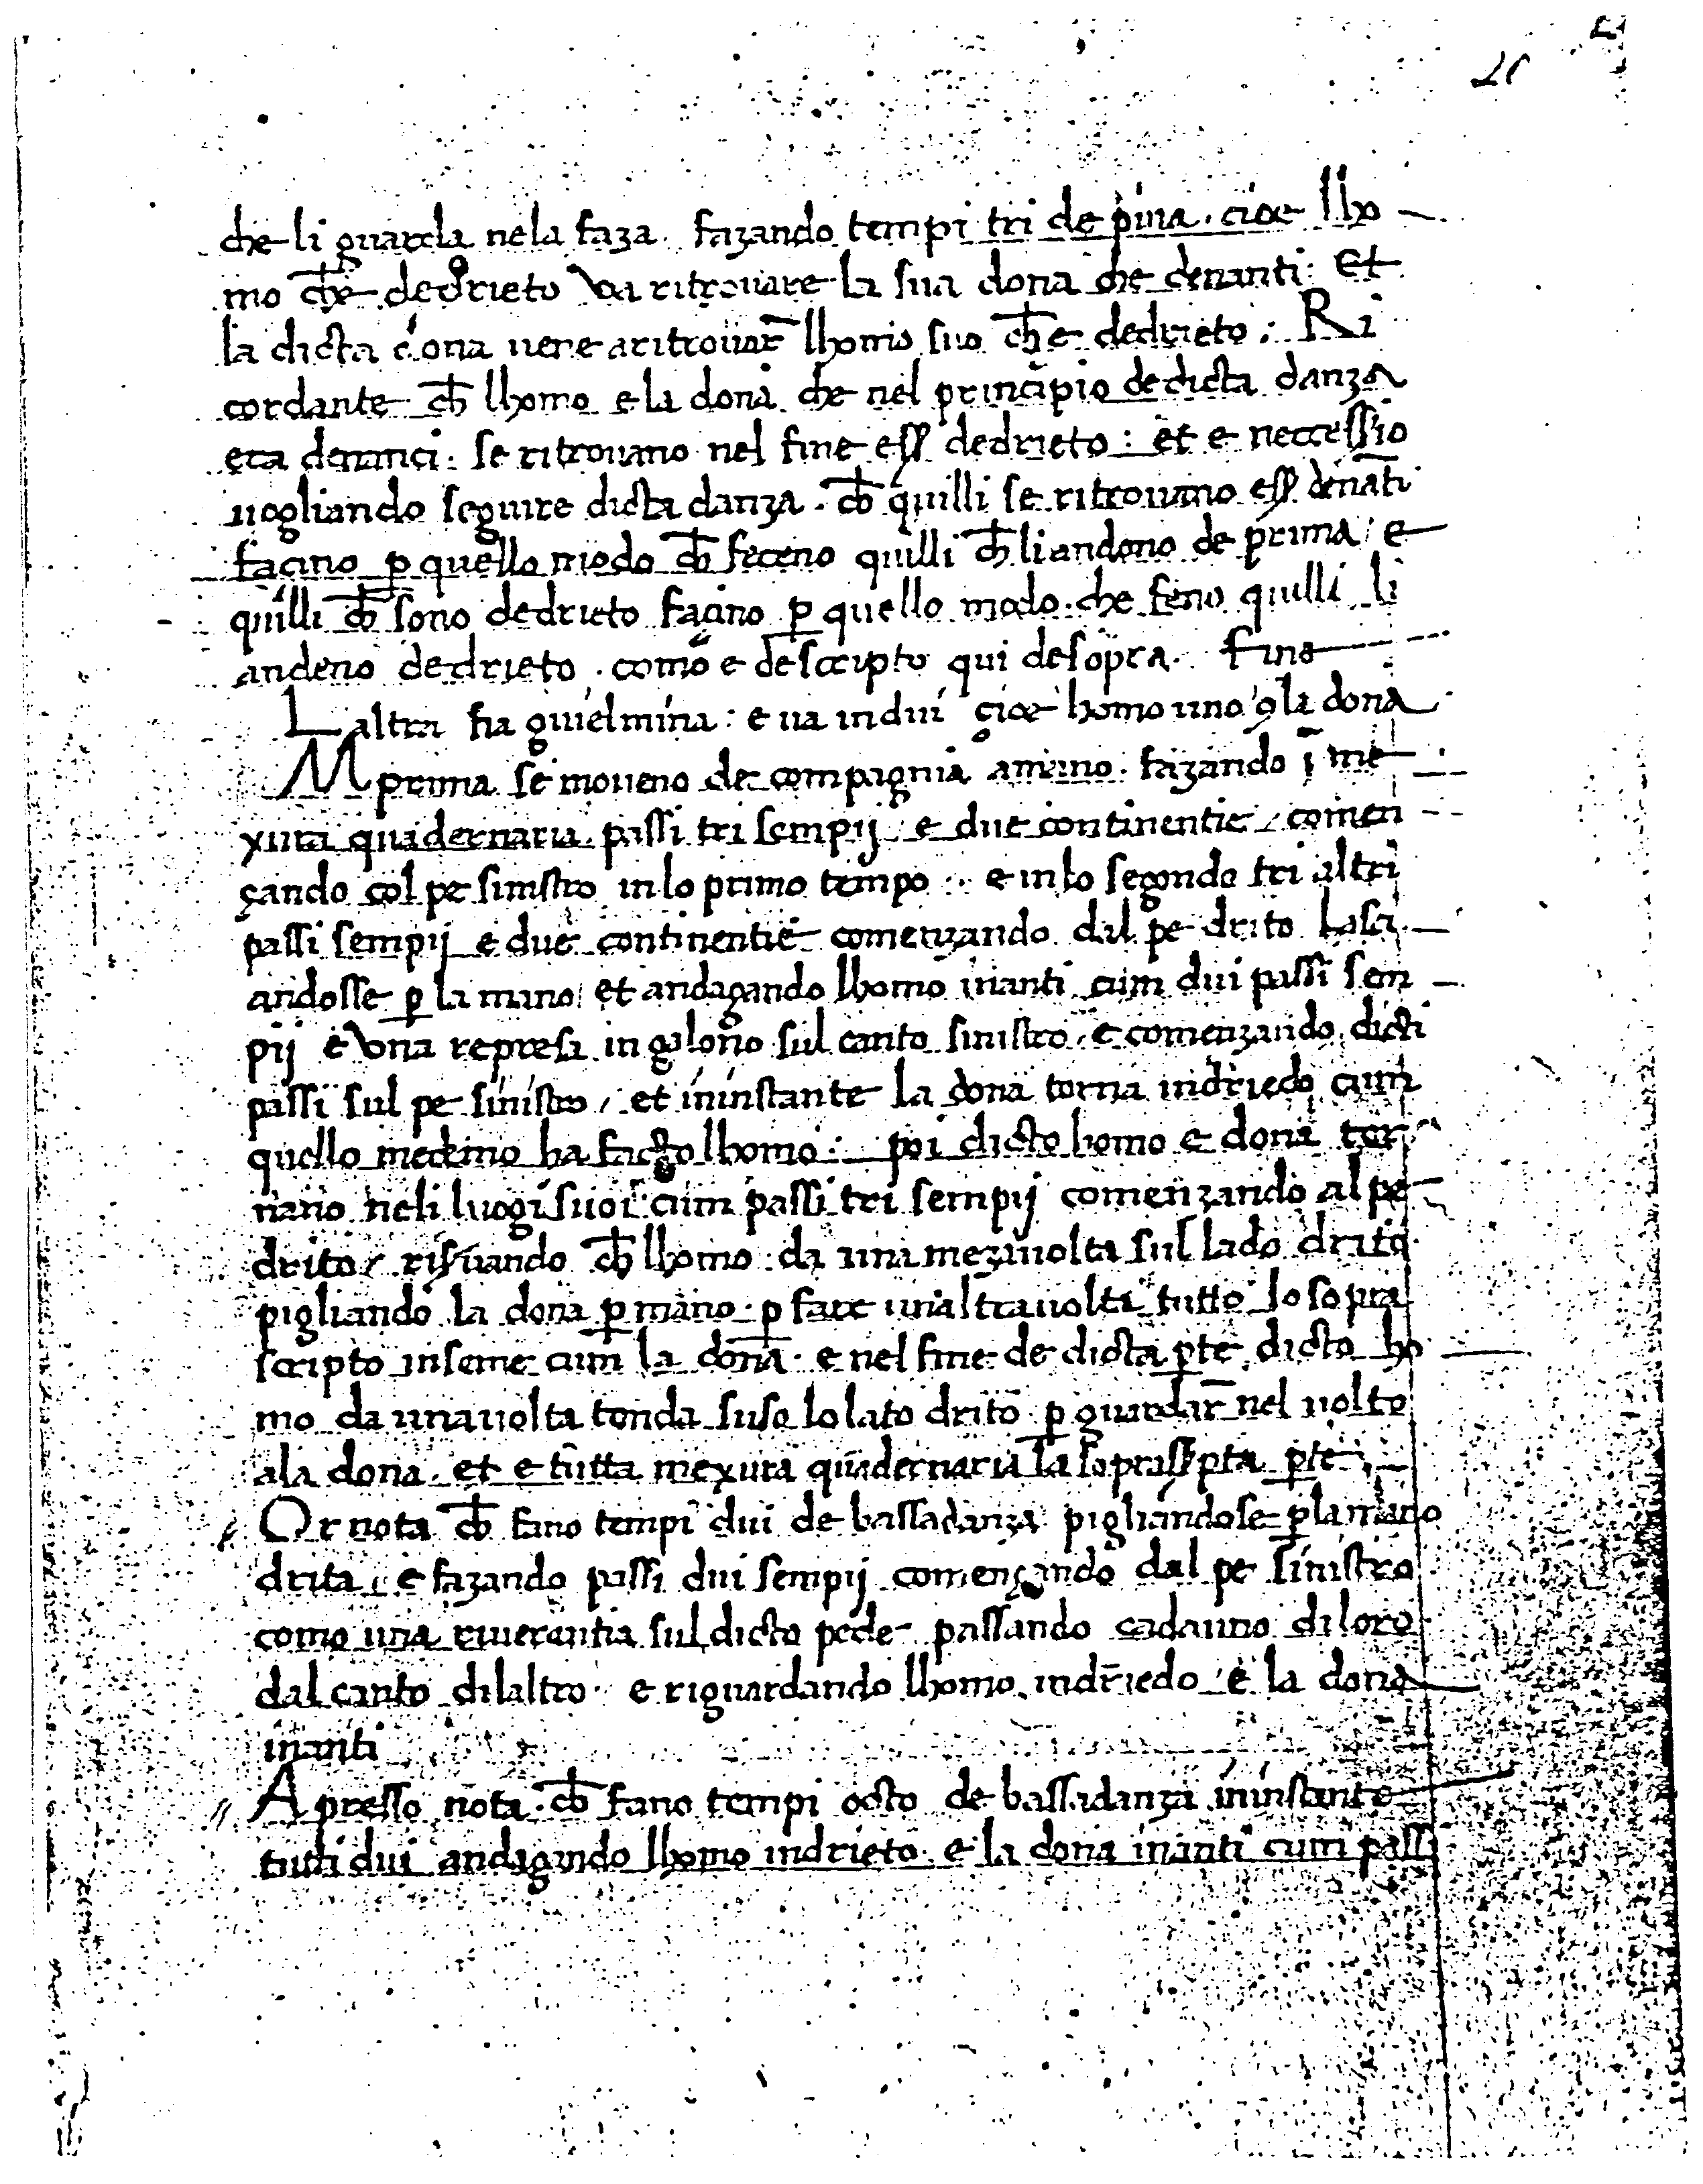 21
che li guarda nela faza. fazando tempi tri de piua. cioe lho
mo ch̄ e dedrieto va ritrouare la sua dona che denanti. Et
la dicta dona uene aritrouar̄ lhomo suo ch̄ e dedrieto: Ri
cordante ch̄ lhomo e la dona che nel principio de dicta danza
era denanci. se ritrouano nel fine eſſ dedrieto: et e necessio
uogliando seguire dicta danza. ch̄ quilli se ritrouano eſſ denāti
facino ꝑ quello modo ch̄ feceno quilli ch̄ li andono de prima / e
quilli ch̄ sono dedrieto facino ꝑ quello modo. che feno quilli li
andeno dedrieto. como e descripto qui desopra. Fine
Laltra fia guielmina: e ua in dui cioe homo uno ꝯ la dona
Mprima se moueno de compagnia amano. fazando ī me
xura quadernaria passi tri sempij e due continentie / comen
çando col pe sinistro in lo primo tempo. e in lo segondo tri altri
passi sempij e due continentie comenzando dal pe drito Lasci
andosse ꝑ la mano et andagando lhomo inanti cum dui passi sem
pij e vna represa in galono sul canto sinistro e comenzando dicti
passi sul pe sinistro / et ininstante la dona torna indriedo cum
quello medemo ha facto lhomo: poi dicto homo e dona tor
nano neli luogi suoi cum passi tri sempij comenzando al pe
drito / risuando ch̄ lhomo da una mezauolta sul lado drito
pigliando la dona ꝑ mano. ꝑ fare unaltrauolta tutto lo sopra
scripto inseme cum la dona. e nel fine de dicta ꝑte dicto ho
mo da una uolta tonda suso lo lato drito ꝑ guardar̄ nel uolto
ala dona. et e tutta mexura quadernaria la soprasſpta ꝑte
Or nota ch̄ fano tempi dui de bassadanza pigliandose ꝑ la mano
drita. e fazando passi dui sempij començando dal pe sinistro
como una riuerentia sul dicto pede passando cadauno di loro
dal canto dilaltro. e riguardando lhomo indriedo e la dona
inanti
Apresso nota. ch̄ fano tempi octo de bassadanza ininstante
tutti dui andagando lhomo indrieto. e la dona inanti cum passi